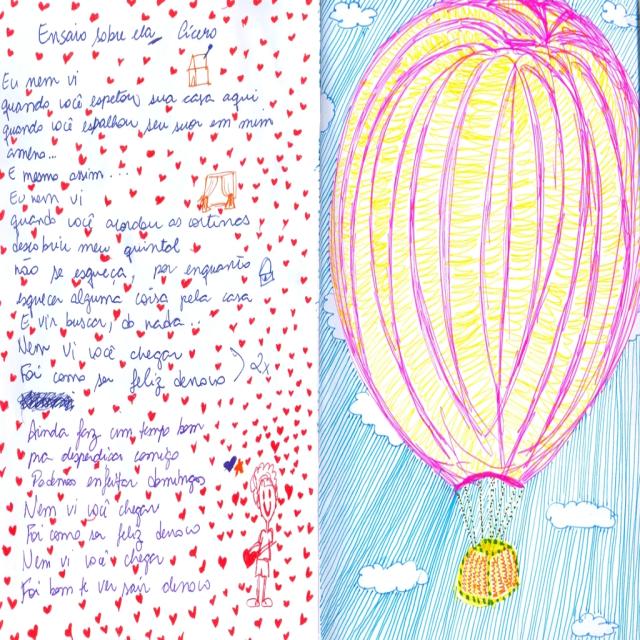 Ensaio sobre ela Cícero
Eu nem vi
quando você espetou sua casa aqui
quando você espalhou seu suor em mim
ameno...
E mesmo assim...
Eu nem vi
quando você acordou as cortinas
descobriu meu quintal
não se esqueça, por enquanto
esquecer alguma coisa pela casa
E vir buscar, do nada...
Nem vi você chegar
Foi como ser feliz denovo
2x
Ainda faz um tempo bom
pra desperdiçar comigo
Podemos enfeitar domingos
Nem vi você chegar
Foi como ser feliz denovo
Nem vi você chegar
Foi bom te ver sair denovo